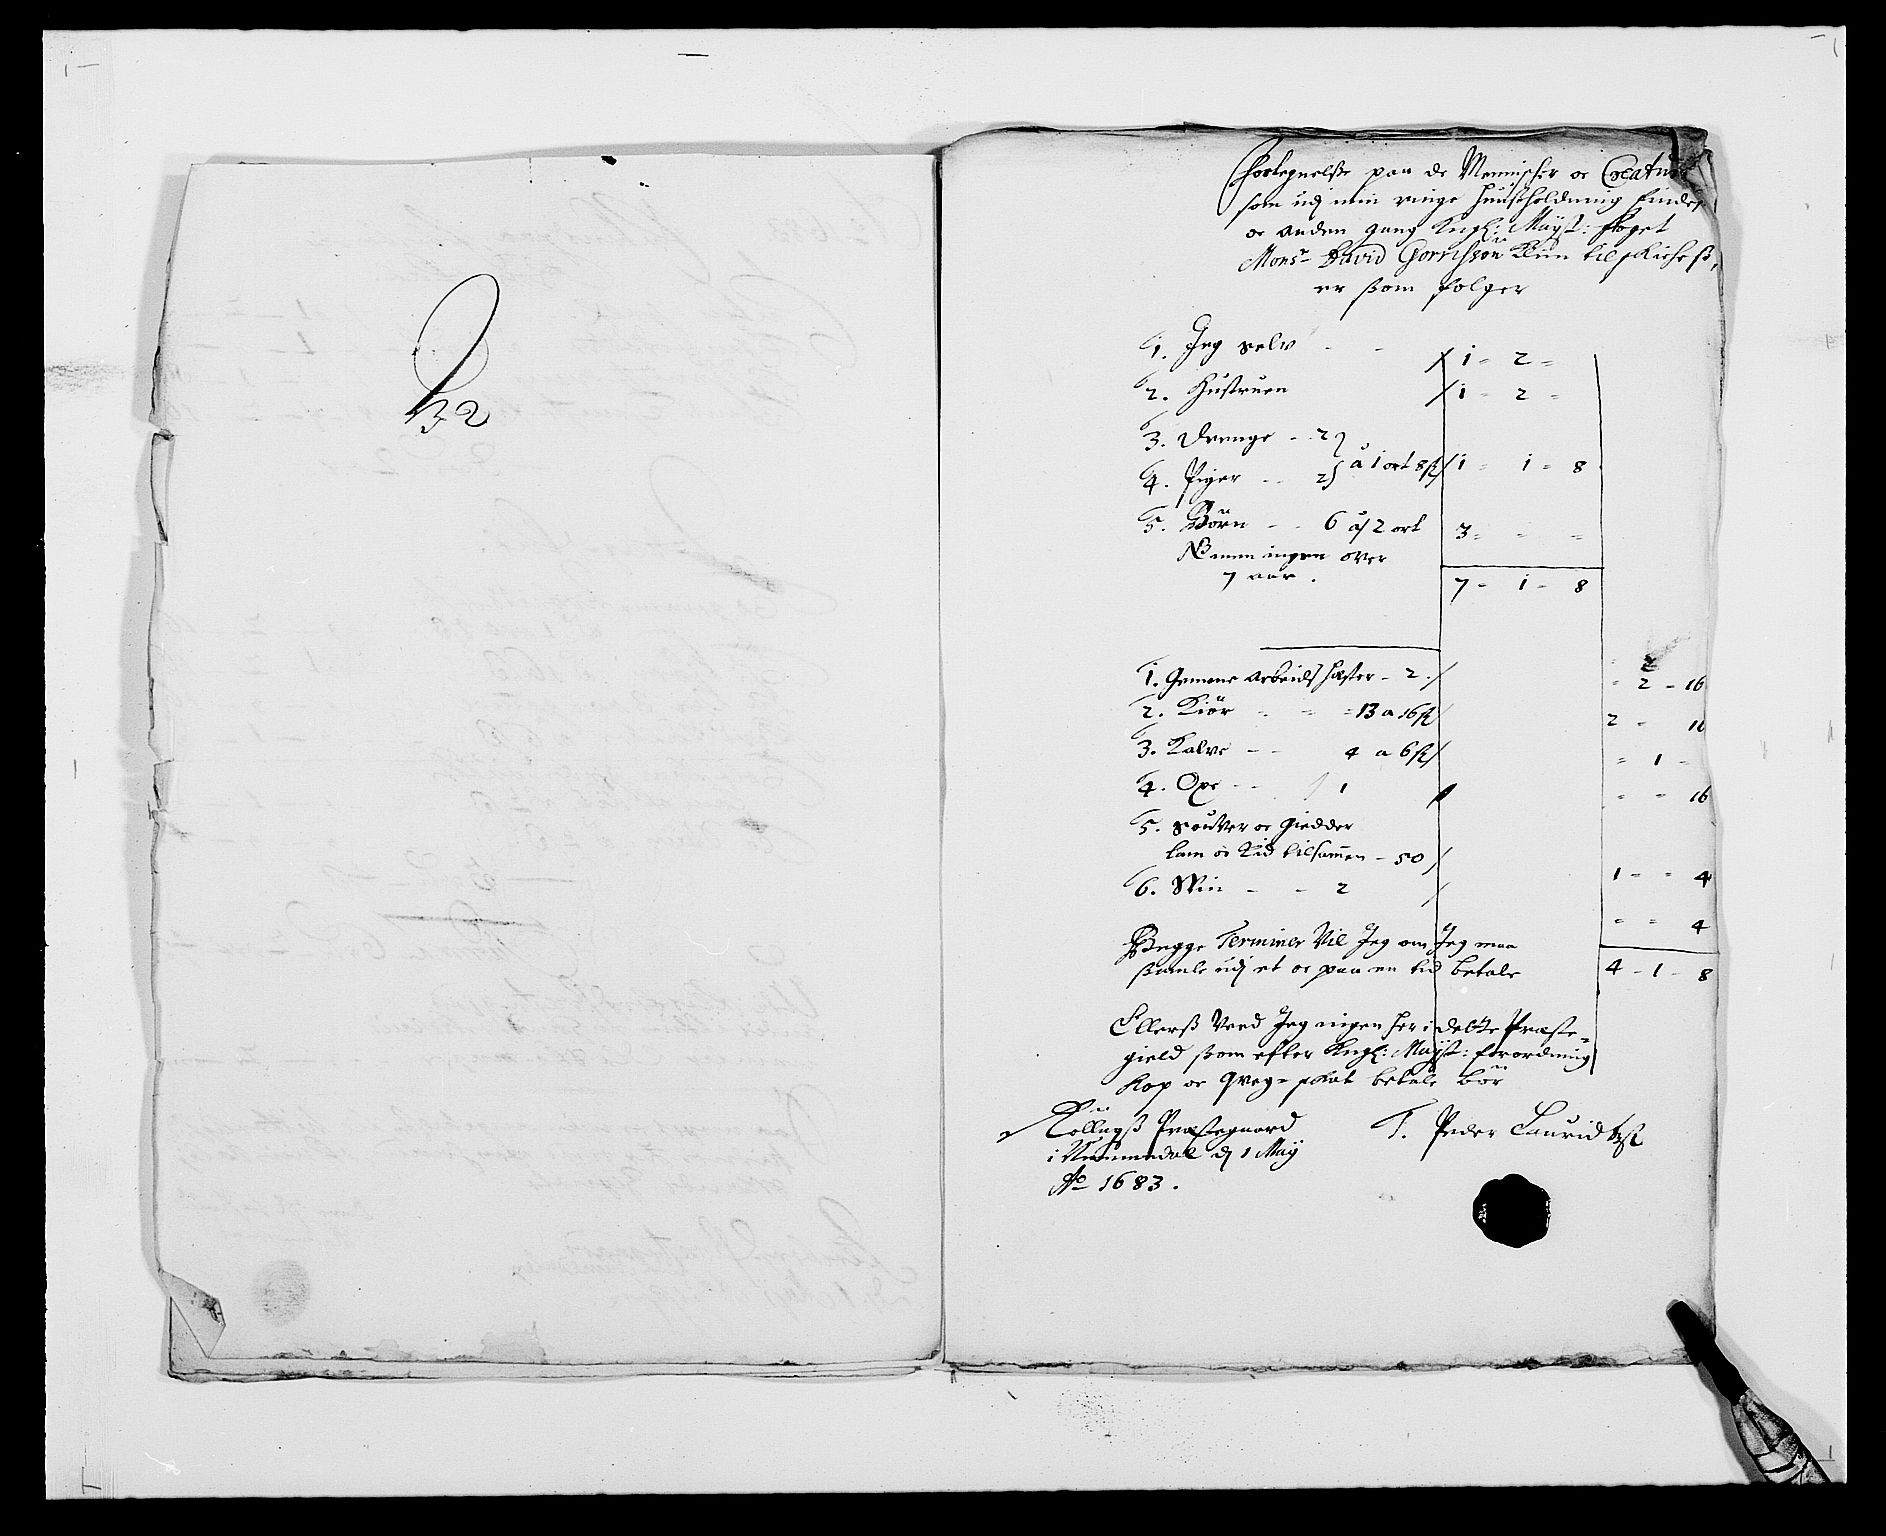 32
Fortegnelse paa de Mennischer oc Creatur
som udj min ringe Huusholdning findes
oc anden gang Kngl: Mayst: foget
Monsr David Gorrisson Kiin tilskichess,
er ssom følger
1. Jeg selv - - 1 - 2 -
2. Hustruen 1 - 2 -
3. Drenge - - 2
4. Piger - - 2 a 1 ort 8 sk 1 - 1 - 8
5. Börn - - 6 a 2 ort 3 - - -
NB men ingen over
7 aar.
7 - 1 - 8
1. Gemene arbeids hester - 2 - 2 - 16
2. Kiør - - - 13 a 16 sk 2 - 16
3. Kalve - - 4 a 6 sk - 1 -
4. Oxe - - 1 - - 16
5. souver oc giedder
lam oc Kid tilsamen - 50 1 - - 4
6. Svin - - 2 - - 4
Begge Terminer Vil Jeg om Jeg maa
ssamle udj et oc paa en tid betale
4 - 1 - 8
Ellerss Veed Jeg ingen her i dette Præste-
gield ssom efter Kngl: Mayst: forordning
Kop oc qveg-skat betale bör
Röllagss Præstegaard
i Nummedal dj 1 Maij
Ao 1683.
T. Peder Lauridtss